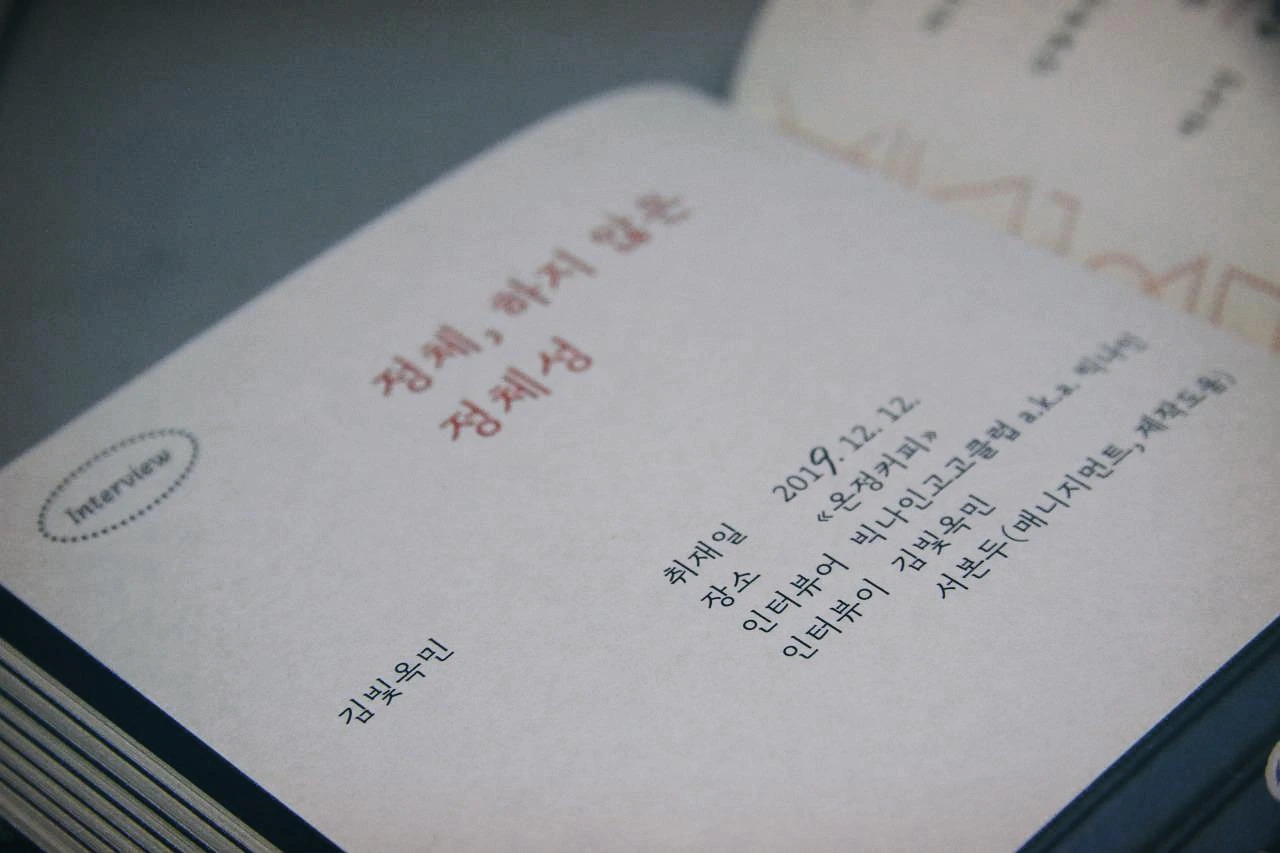 Interview
정체, 하지 않은
정체성
김빛옥민
취재일 2019. 12. 12.
장소 《온정커피》
인터뷰어 빅나인고고클럽 a.k.a. 빅나인
인터뷰이 김빛옥민
서본두(매니지먼트, 제작도움)